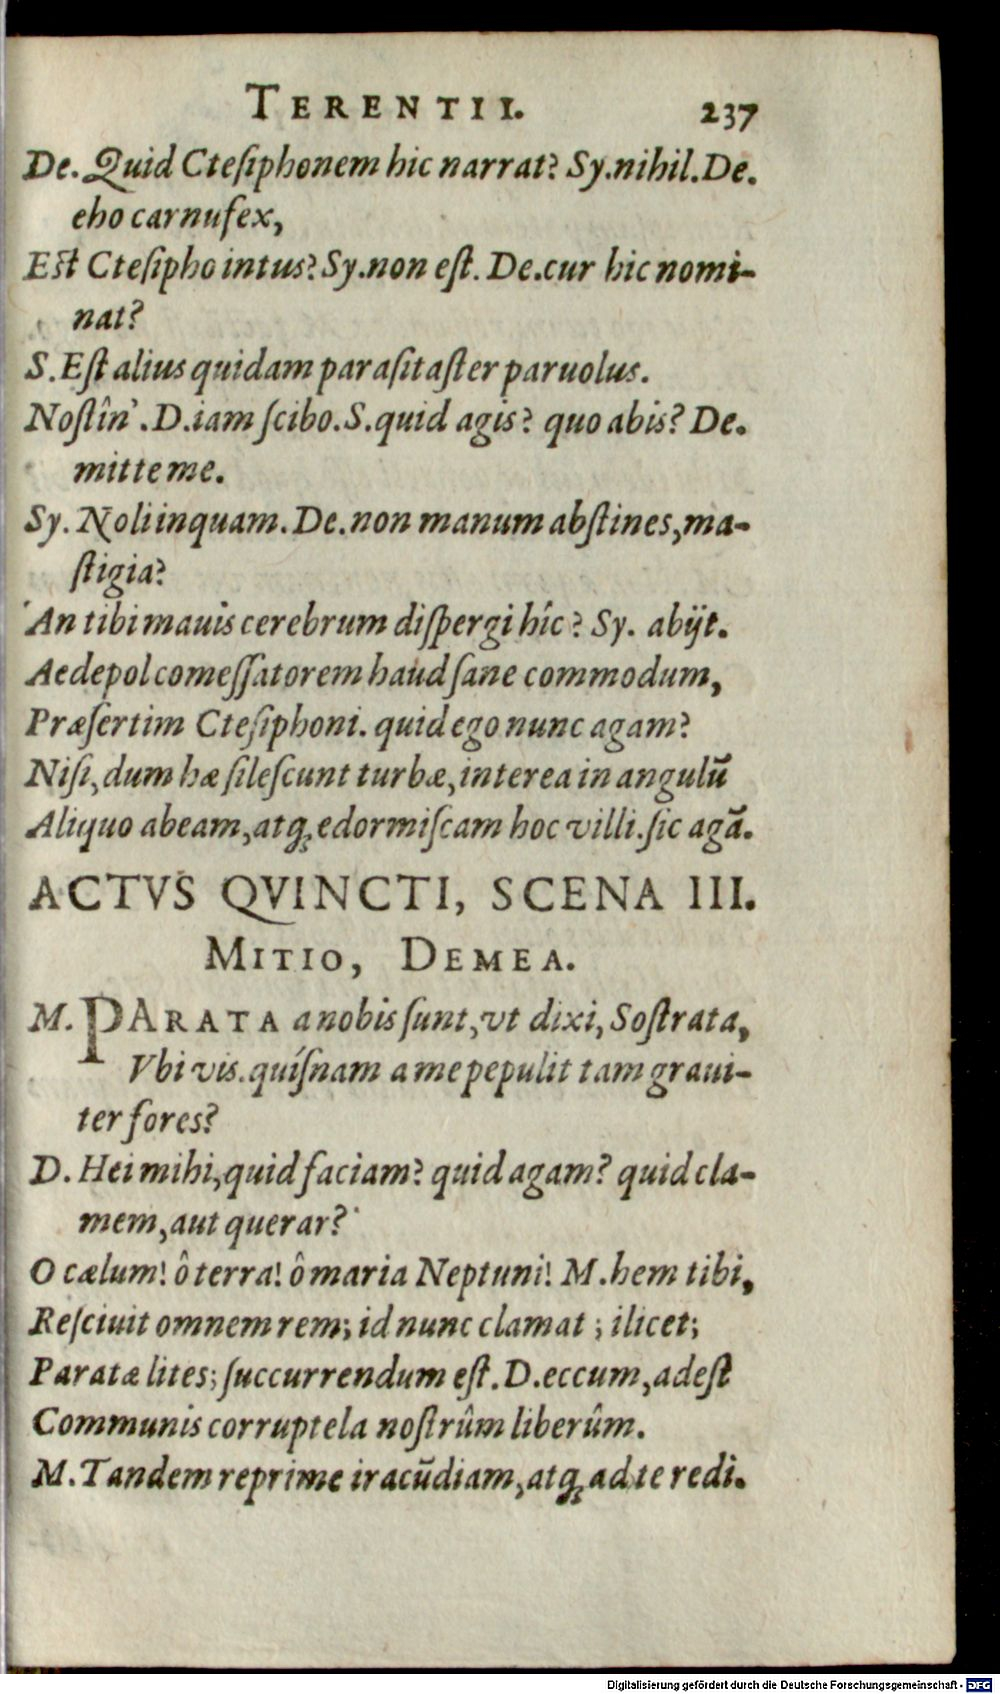 TERENTII. 237
De. Quid Cteſiphonem hic narrat? Sy. nihil. De.
eho carnufex,
Eſt Cteſipho intus? Sy. non eſt. De. cur hic nomi-
nat?
S. Eſt alius quidam paraſitaſter paruolus.
Noſtîn'. D. iam ſcibo. S. quid agis? quo abis? De.
mitte me.
Sy. Noli inquam. De. non manum abſtines, ma-
ſtigia?
An tibi mauis cerebrum diſpergi hîc? Sy. abijt.
Aedepol comeſſatorem haud ſane commodum,
Præſertim Cteſiphoni. quid ego nunc agam?
Niſi, dum hæ ſileſcunt turbæ, interea in angulū
Aliquo abeam, atq; edormiſcam hoc villi. ſic agā.
ACTVS QVINCTI, SCENA III.
MITIO, DEMEA.
M. PARATA a nobis ſunt, vt dixi, Soſtrata,
Vbi vis. quíſnam a me pepulit tam graui-
ter fores?
D. Hei mihi, quid faciam? quid agam? quid cla-
mem, aut querar?
O cælum! ô terra! ô maria Neptuni! M. hem tibi,
Reſciuit omnem rem; id nunc clamat; ilicet;
Paratæ lites; ſuccurrendum eſt. D. eccum, adeſt
Communis corruptela noſtrûm liberûm.
M. Tandem reprime iracūdiam, atq; ad te redi.
Digitalisierung gefördert durch die Deutsche Forschungsgemeinschaft - DFG